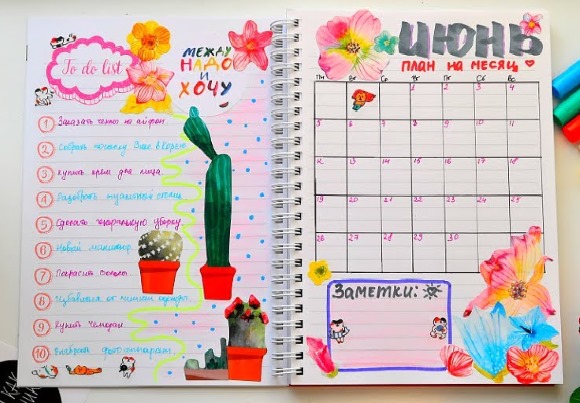 To do list
МЕЖДУ
НАДО
И
ХОЧУ
1 Заказать стекло на айфон
2 Собрать посылку Вике в Корею
3 Купить крем для лица
4 Разобрать туалетный столик
5 Сделать генеральную уборку
6 Новый маникюр
7 Покрасить
8 Избавиться от лишней одежды
9 Купить чемодан
10 Выбрать фотоаппарат
ИЮНЬ
ПЛАН НА МЕСЯЦ
Пн Вт Ср Чт Пт Сб Вс
1 2 3 4
5 6 7 8 9 10 11
12 13 14 15 16 17 18
19 20 21 22 23 24 25
26 27 28 29 30
Заметки: